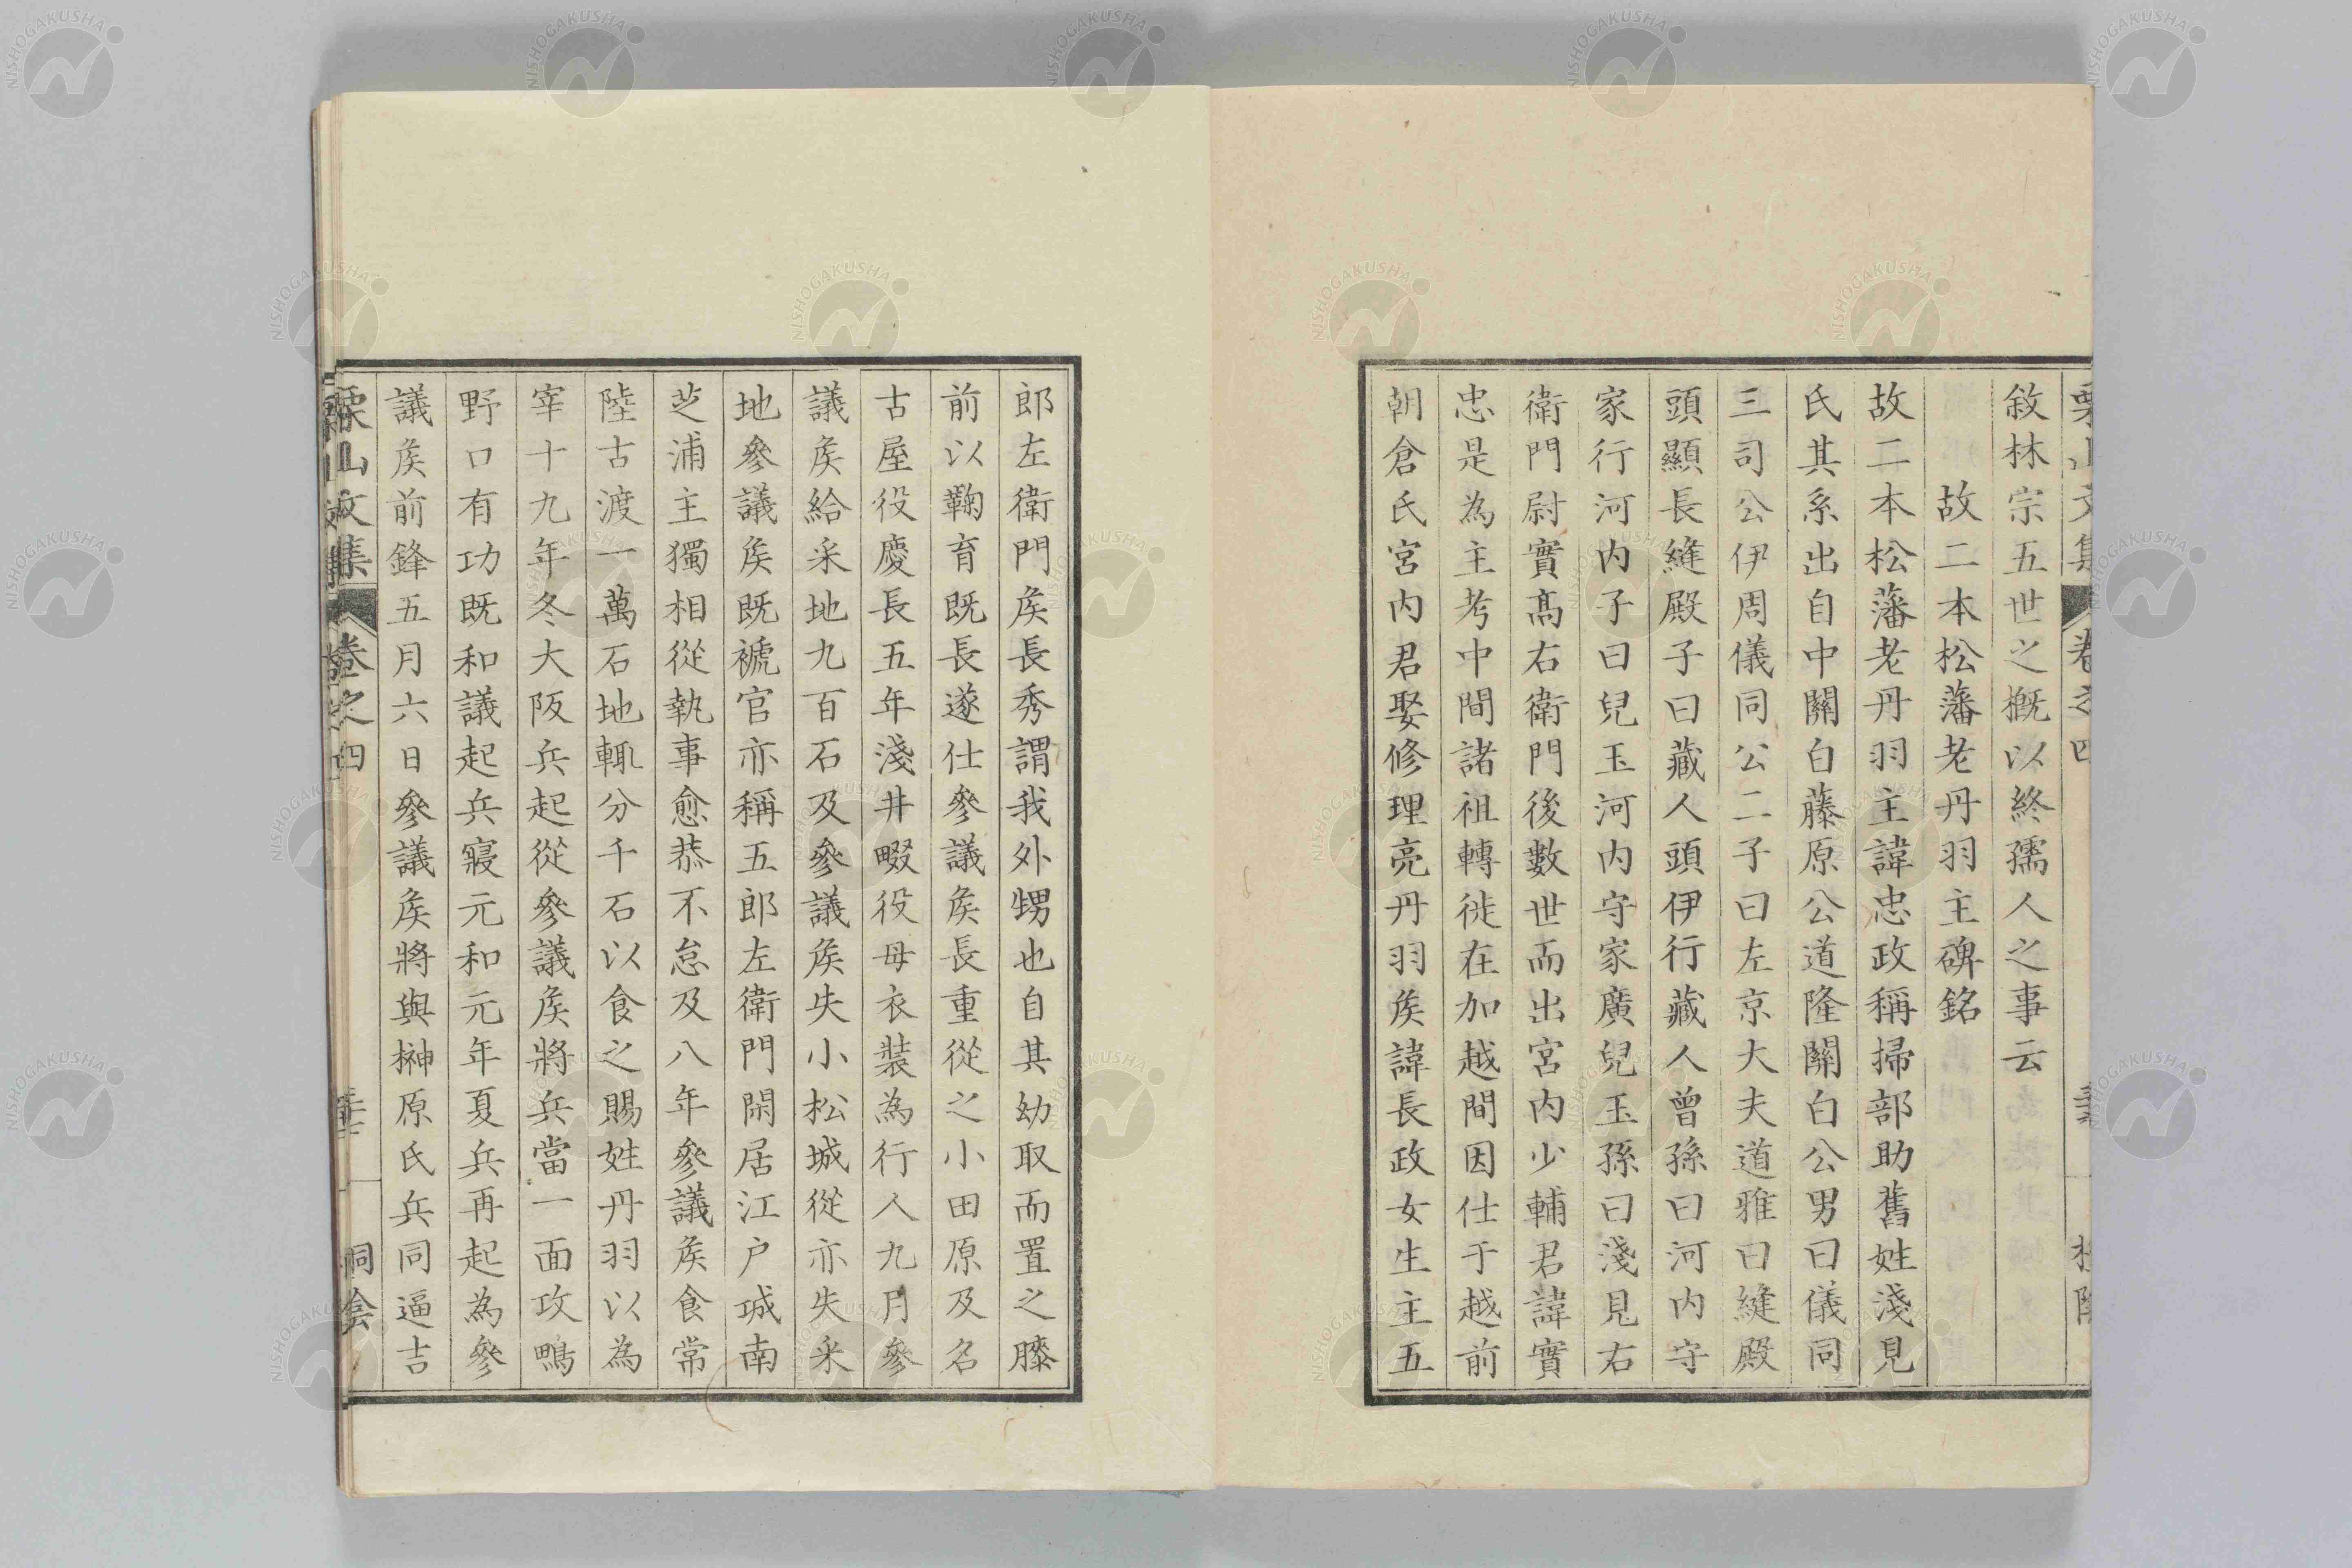 敘林宗五世之概以終孺人之事云
故二本松藩老丹羽主碑銘
故二本松藩老丹羽主諱忠政稱掃部助舊姓淺見
氏其系出自中關白藤原公道隆關白公男曰儀同
三司公伊周儀同公二子曰左京大夫道雅曰縫殿
頭顯長縫殿子曰藏人頭伊行藏人曾孫曰河內守
家行河內子曰兒玉河內守家廣兒玉孫曰淺見右
衛門尉實高右衛門後數世而出宮內少輔君諱實
忠是為主考中間諸祖轉徙在加越間因仕于越前
朝倉氏宮內君娶修理亮丹羽矦諱長政女生主五
郎左衛門矦長秀謂我外甥也自其幼取而置之膝
前以鞠育既長遂仕參議矦長重從之小田原及名
古屋役慶長五年淺井畷役毋衣裝為行人九月參
議矦給采地九百石及參議矦失小松城從亦失采
地參議矦既褫官亦稱五郎左衛門閑居江戶城南
芝浦主獨相從執事愈恭不怠及八年參議矦食常
陸古渡一萬石地輒分千石以食之賜姓丹羽以為
宰十九年冬大阪兵起從參議矦將兵當一面攻鴫
野口有功既和議起兵寢元和元年夏兵再起為參
議矦前鋒五月六日參議矦將與榊原氏兵同逼吉
栗山文集
卷之四